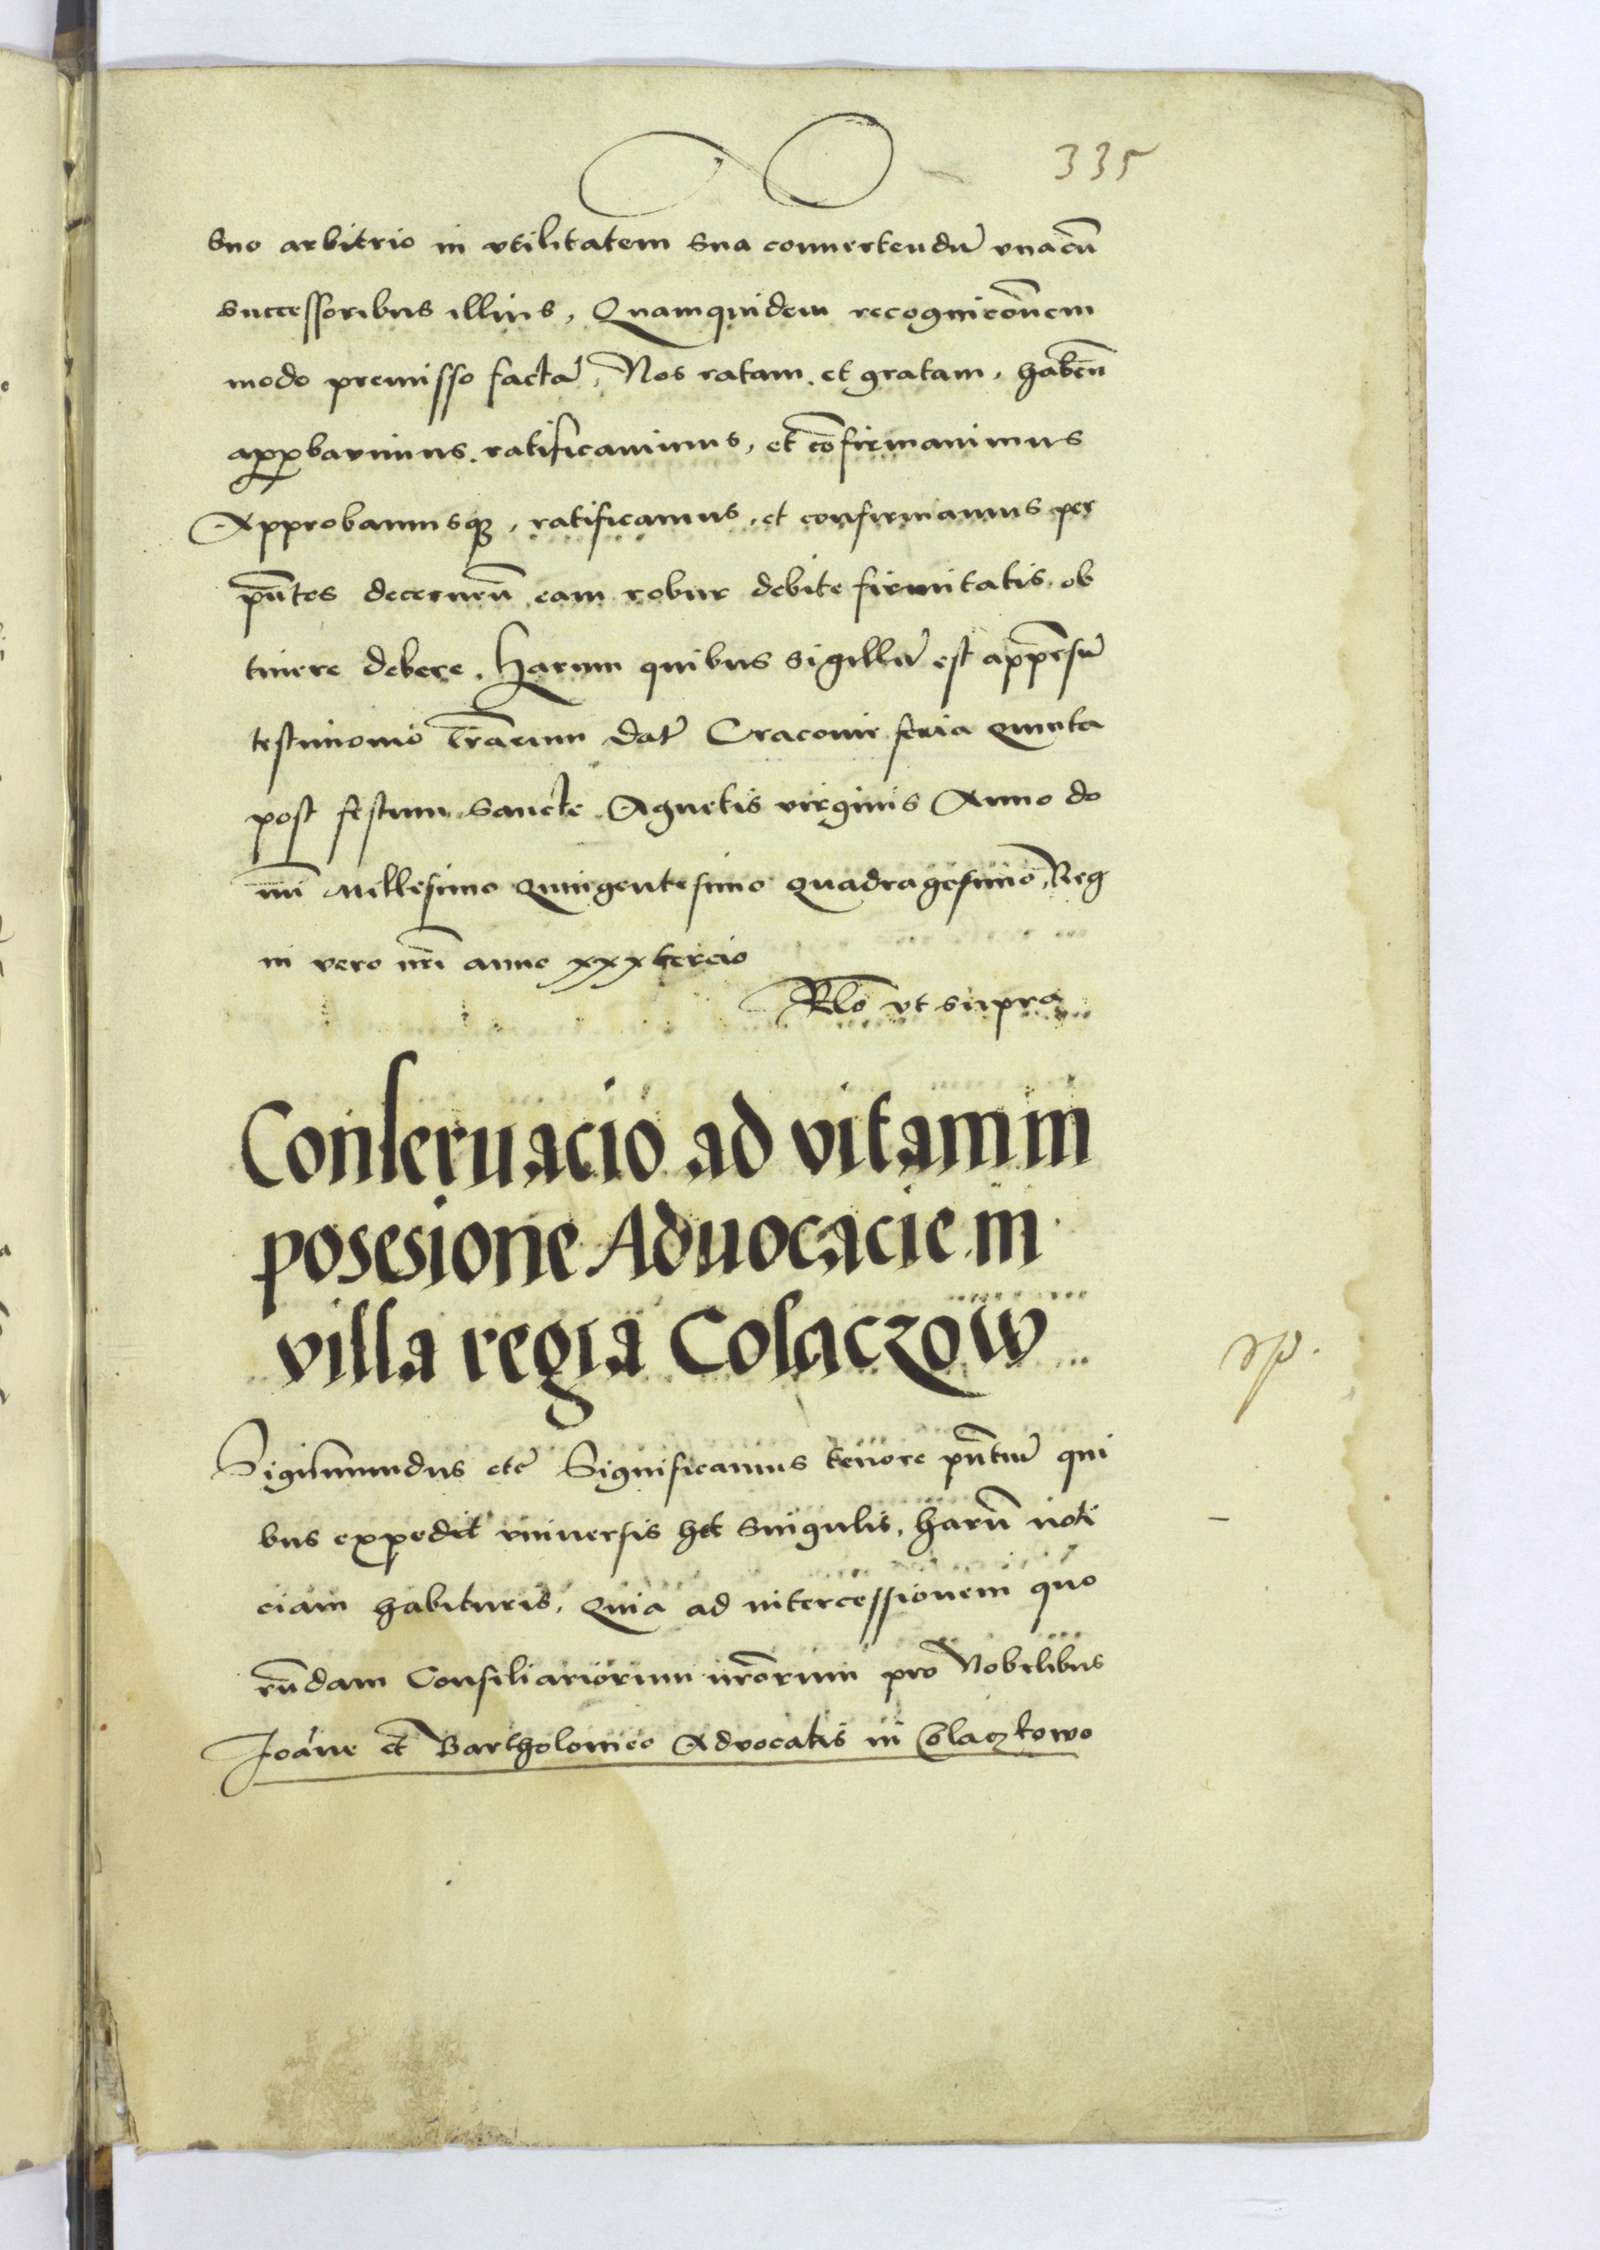 335
suo arbitrio in vtilitatem sua conuertendū vnacū
successoribus illius, Quamquidem recognicōnem
modo premisso factā, Nos ratam et gratam, habeñ
approbauimus ratificauimus, et cōfirmauimus
Approbamusqꝫ, ratificamus, et confirmamus per
pn̄tes decerneñ eam robur debite firmitatis ob
tinere debere. Harum quibus sigillū est appensū
testimonio lr̄arum dat̄ Cracovie feria quinta
post festum Sancte Agnetis virginis Anno do
mī Millesimo quingentesimo quadragesimo, Reg
ni vero nr̄i anno xxxtercio
Rlo vt supra
Conseruacio ad vitam in
posesione Aduocacie in
villa regia Colaczow
Sigismundus etc̄ Significamus tenore pn̄tiū qui
bus expedit vniuersis et singulis, harū noti
ciam habituris, quia ad intercessionem quo
rūdam Consiliariorum nr̄orum pro Nobilibus
Joāne et Bartholomeo Aduocatis in Colaczkowo